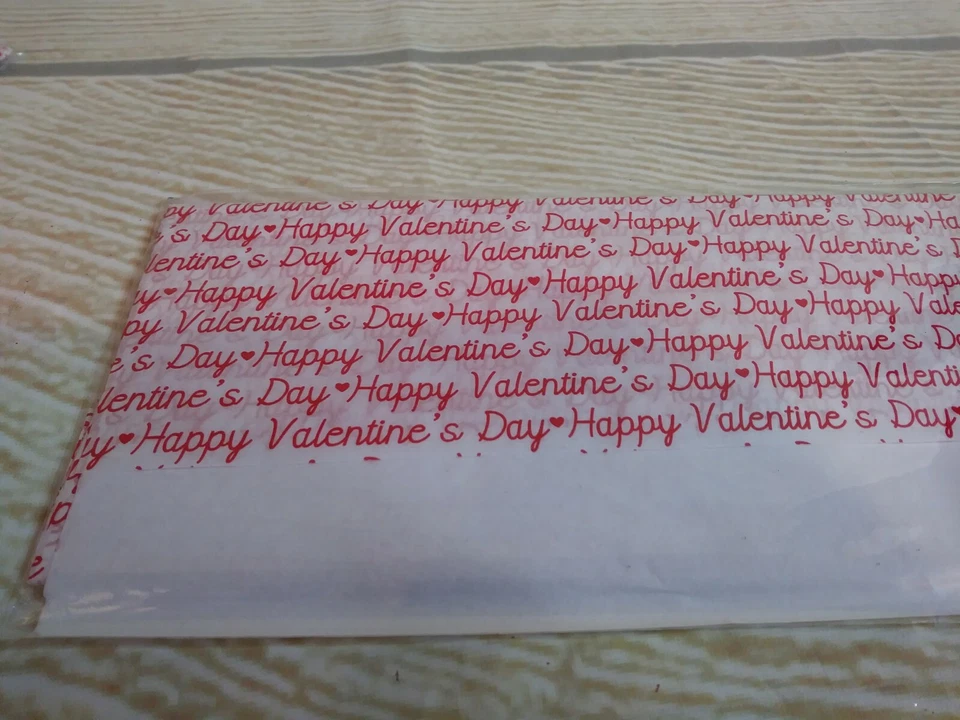 Valentine's Day Happy Valentine's Day Happy Valentine
's Day♥Happy Valentine's Day♥Happy Valentine's Day♥Ha
lentine's Day♥Happy Valentine's Day♥Happy Valentine's D
y♥Happy Valentine's Day♥Happy Valentine's Day♥Happy
py Valentine's Day♥Happy Valentine's Day♥Happy Vale
e's Day♥Happy Valentine's Day♥Happy Valentine's Da
lentine's Day♥Happy Valentine's Day♥Happy Valenti
y♥Happy Valentine's Day♥Happy Valentine's Day♥